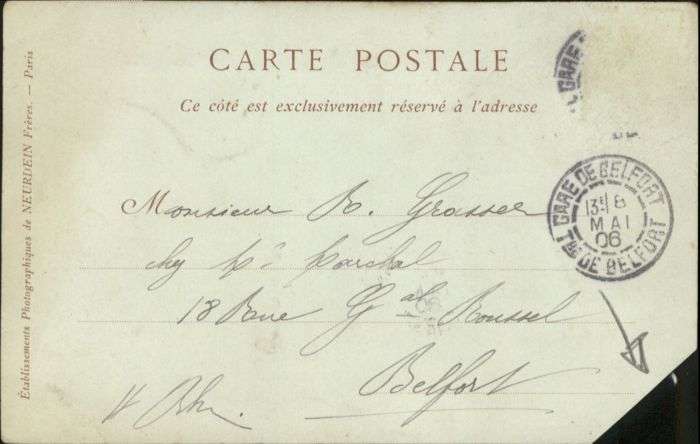 CARTE POSTALE
Ce côté est exclusivement réservé à l'adresse
Établissements Photographiques de NEURDEIN Frères. — Paris
GARE
GARE DE BELFORT
13 8
MAI
06
Tre DE BELFORT
Monsieur R. Grasser
chez Mr
18 Rue Gal Roussel
Belfort